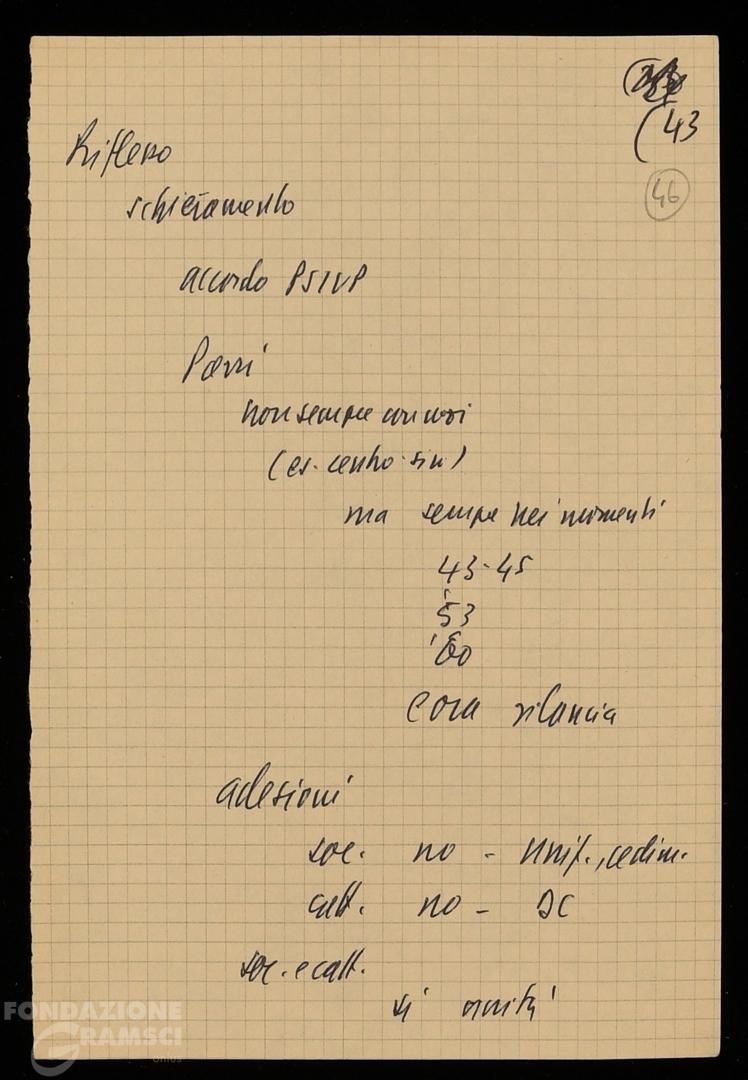 (43
46
Riflesso
schieramento
accordo PSIUP
Parri
non sempre con noi
(es. centro-sin)
ma sempre nei momenti
43-45
'53
'60
e ora rilancia
adesioni
soc. no - Unif., cedim.
catt. no - DC
soc. e catt.
sì unità
FONDAZIONE
GRAMSCI
onlus